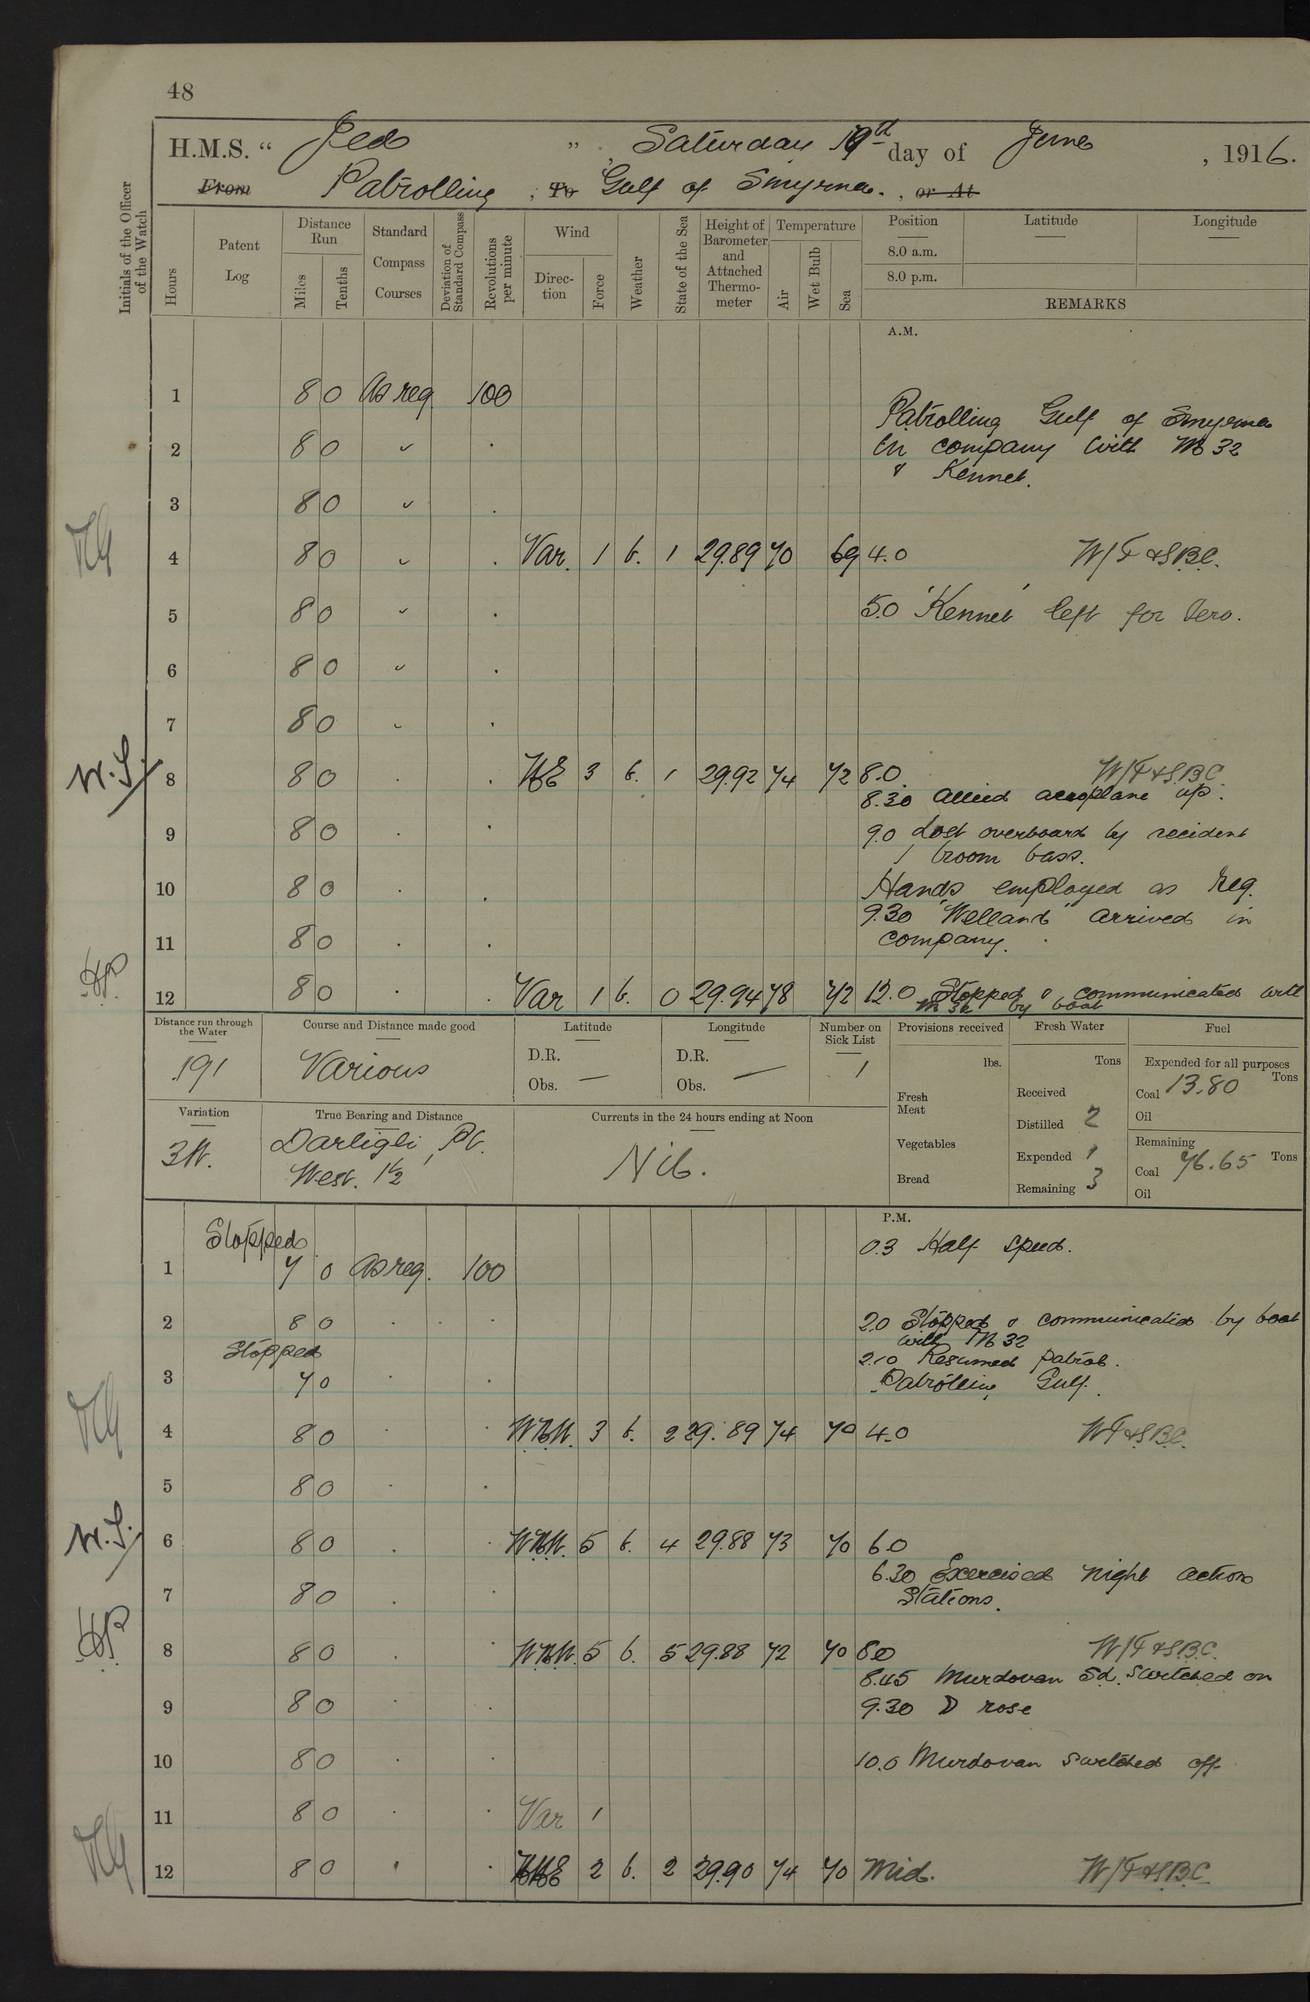 48
H.M.S. " Jed " , Saturday day of June , 1916.
From Patrolling , To Gulf of Smyrna. , or At
Initials of the Officer of the Watch
Hours
Patent Log
Distance Run
Miles
Tenths
Standard Compass Courses
Deviation of Standard Compass
Revolutions per minute
Wind
Direction
Force
Weather
State of the Sea
Height of Barometer and Attached Thermometer
Temperature
Air
Wet Bulb
Sea
Position
8.0 a.m.
8.0 p.m.
Latitude
Longitude
REMARKS
A.M.
1 8 0 As req. 100
Patrolling Gulf of Smyrna
2 8 0 in company with M 32
& Kennet.
3 8 0
4 8 0 Var. 1 b. 1 29.89 70 69 4.0 W/T & S.B.C.
5 8 0 5.0 'Kennet' left for Iero.
6 8 0
7 8 0
W.S. 8 8 0 3 b. 1 29.92 74 72 8.0 W/T & S.B.C.
8.30 Allied aeroplane up.
9 8 0 9.0 Lost overboard by accident
1 broom bass.
10 8 0 Hands employed as req.
9.30 "Welland" arrived in
11 8 0 company.
12 8 0 Var 1 b. 0 29.94 78 72 12.0 Stopped & communicated with
M 32 by boat
Distance run through the Water
191
Course and Distance made good
Various
Latitude
D.R.
Obs. —
Longitude
D.R.
Obs. —
Number on Sick List
1
Provisions received
lbs.
Fresh Meat
Vegetables
Bread
Fresh Water
Tons
Received
Distilled 2
Expended 1
Remaining 3
Fuel
Expended for all purposes
Tons
Coal 13.80
Oil
Remaining
Coal 76.65 Tons
Oil
Variation
3W.
True Bearing and Distance
Darligli Pt.
West. 1½
Currents in the 24 hours ending at Noon
Nil.
P.M.
Stopped 0.3 Half speed.
1 7 0 As req. 100
2 8 0 2.0 Stopped & communicated by boat
with M 32
Stopped 2.10 Resumed patrol.
3 7 0 Patrolling Gulf.
4 8 0 WbN. 3 b. 2 29.89 74 70 4.0 W/T & S.B.C.
5 8 0
W.S. 6 8 0 5 b. 4 29.88 73 70 6.0
6.30 Exercised night action
7 8 0 Stations.
8 8 0 5 b. 5 29.88 72 70 8.0 W/T & S.B.C.
8.45 Murdovan Sd. switched on
9 8 0 9.30 D rose
10 8 0 10.0 Murdovan switched off
11 8 0 Var 1
12 8 0 2 b. 2 29.90 74 70 Mid. W/T & S.B.C.